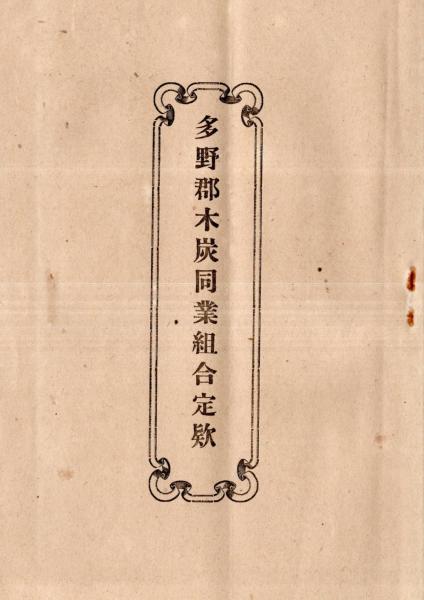 多野郡木炭同業組合定欵